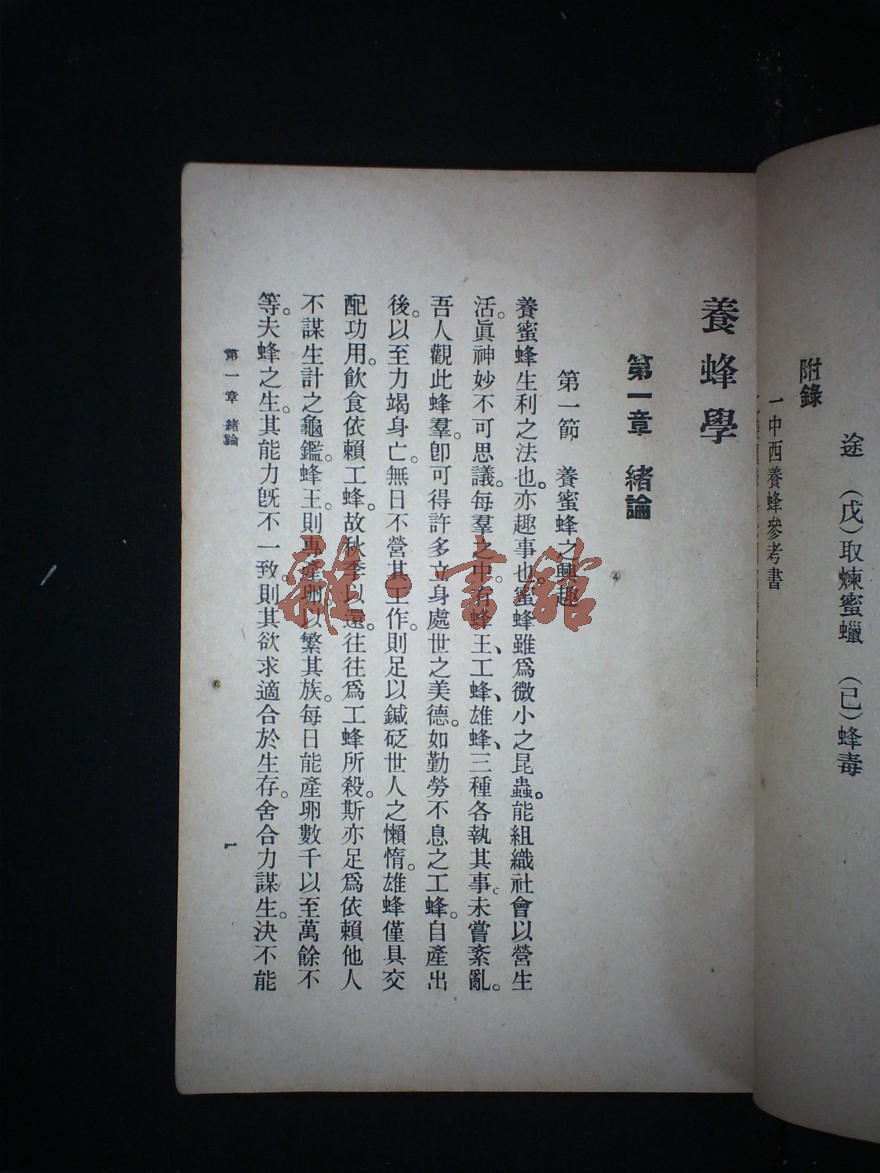 途　（戊）取煉蜜蠟　（己）蜂毒
附錄
一中西養蜂參考書
養蜂學
第一章　緒論
第一節　養蜜蜂之興趣
養蜜蜂生利之法也。亦趣事也。蜜蜂雖爲微小之昆蟲。能組織社會以營生
活。眞神妙不可思議。每羣之中。有蜂王、工蜂、雄蜂、三種各執其事。未嘗紊亂。
吾人觀此蜂羣。卽可得許多立身處世之美德。如勤勞不息之工蜂。自產出
後。以至力竭身亡。無日不營其工作。則足以鍼砭世人之懶惰。雄蜂僅具交
配功用。飲食依賴工蜂。故秋季以還。往往爲工蜂所殺。斯亦足爲依賴他人
不謀生計之龜鑑。蜂王。則專產卵以繁其族。每日能產卵數千以至萬餘不
等。夫蜂之生。其能力旣不一致。則其欲求適合於生存。舍合力謀生。決不能
第一章　緒論
一
雜·書館